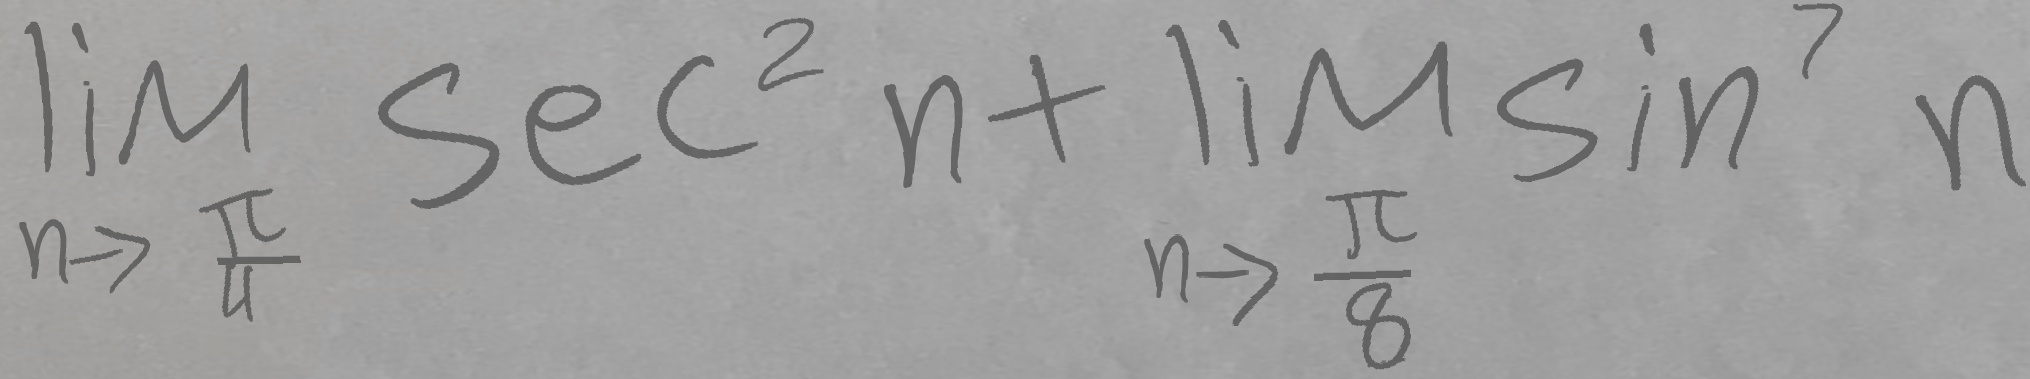 \lim_{n \to \frac{\pi}{4}} \sec^2 n + \lim_{n \to \frac{\pi}{8}} \sin^7 n